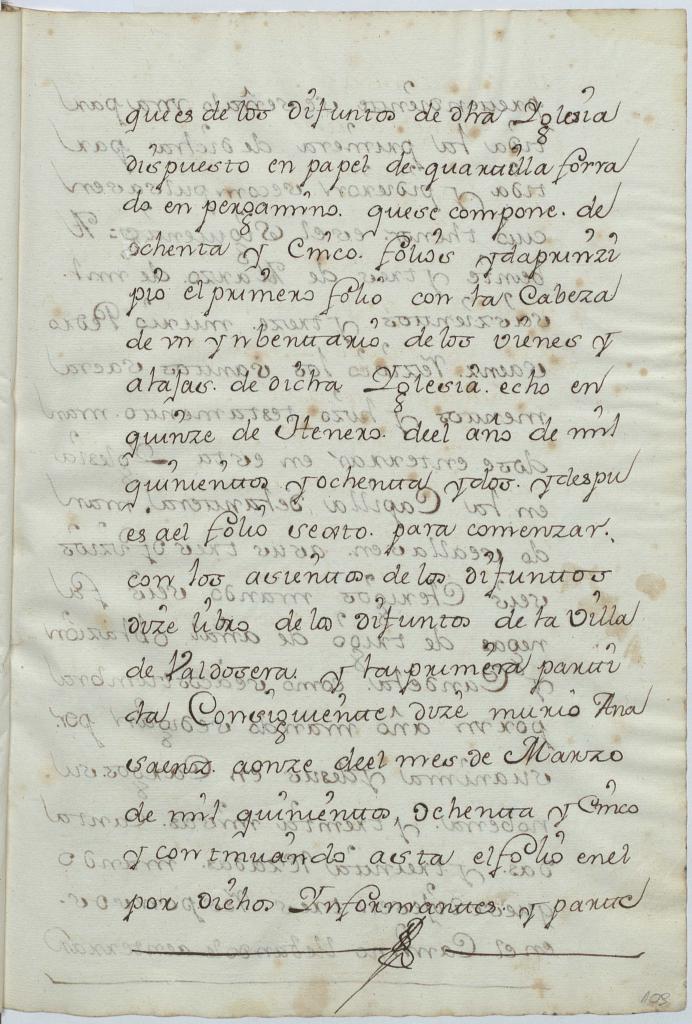 que es de los Difuntos de dha Yglesia
dispuesto en papel de quartilla forra
do en pergamino. que se compone. de
ochenta y Cinco. folios y da prinzi
pio el primero folio con la Cabeza
de vn ynbentario de los vienes y
alajas. de dicha Yglesia. echo en
quinze de Henero. deel año de mil
quinientos y ochenta y dos. y despu
es ael folio sexto. para comenzar.
con los asientos de los difuntos
dize libro de los Difuntos de la Villa
de Valdosera. y la primera parti
da Consiguiente dize murio Ana
saenz. a onze deel mes de Marzo
de mil quinientos, ochenta y Cinco
y continuando asta el folio en el
por dichos Ynformantes. y parte
103